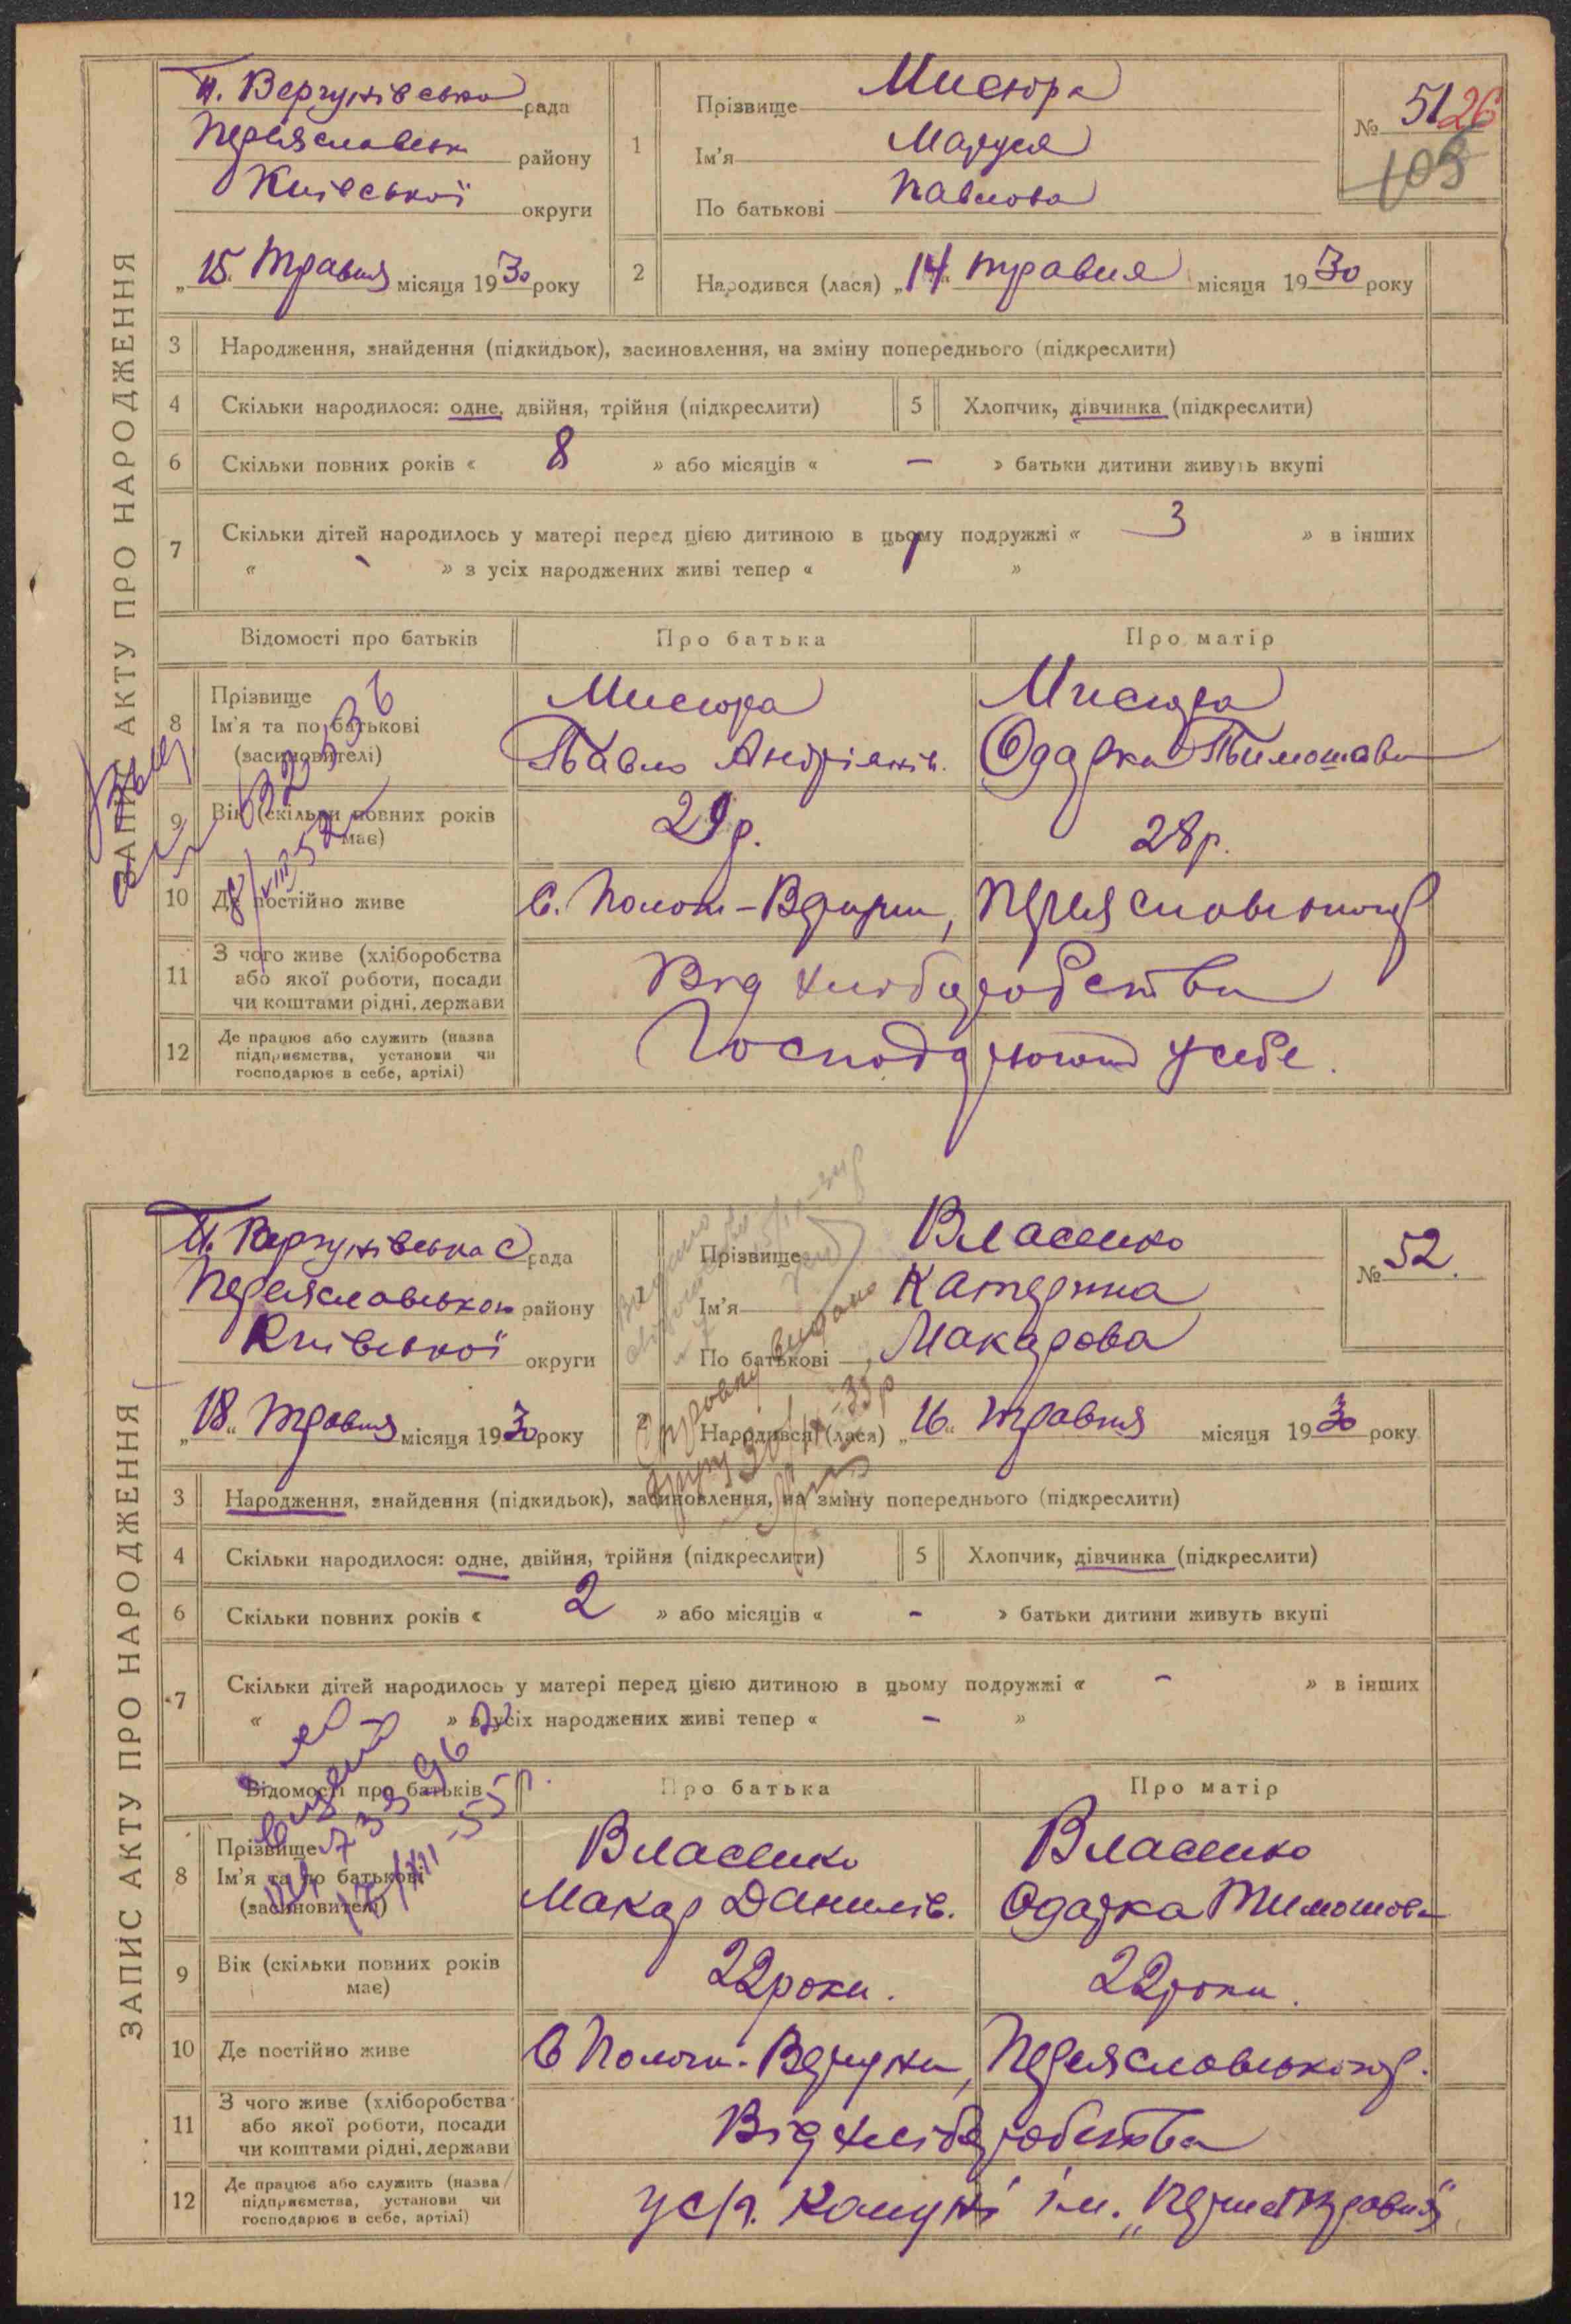 ЗАПИС АКТУ ПРО НАРОДЖЕННЯ
П. Вергунівська рада
Переяславськ району
Київської округи
"15" травня місяця 1930 року
1 Прізвище Мисюра
Ім'я Маруся
По батькові Павлова
№ 51 26
103
2 Народився (лася) "14" травня місяця 1930 року
3 Народження, знайдення (підкидьок), засиновлення, на зміну попереднього (підкреслити)
4 Скільки народилося: одне, двійня, трійня (підкреслити) 5 Хлопчик, дівчинка (підкреслити)
6 Скільки повних років « 8 » або місяців « - » батьки дитини живуть вкупі
7 Скільки дітей народилось у матері перед цією дитиною в цьому подружжі « 3 » в інших
« » з усіх народжених живі тепер « 1 »
Відомості про батьків Про батька Про матір
8 Прізвище Мисюра Мисюра
Ім'я та по батькові Павло Андріянів. Одарка Тимошова
(засиновителі)
9 Вік (скільки повних років має) 29 р. 28 р.
10 Де постійно живе С. Полог-Вергуни, Переяславського р
11 З чого живе (хліборобства або якої роботи, посади чи коштами рідні, держави Від хліборобства
12 Де працює або служить (назва підприємства, установи чи господарює в себе, артілі) Господарюють у себе.
ЗАПИС АКТУ ПРО НАРОДЖЕННЯ
П. Вергунівська С рада
Переяславського району
Київської округи
"18" травня місяця 1930 року
1 Прізвище Власенко
Ім'я Катерина
По батькові Макарова
№ 52.
2 Народився (лася) "16" травня місяця 1930 року
3 Народження, знайдення (підкидьок), засиновлення, на зміну попереднього (підкреслити)
4 Скільки народилося: одне, двійня, трійня (підкреслити) 5 Хлопчик, дівчинка (підкреслити)
6 Скільки повних років « 2 » або місяців « - » батьки дитини живуть вкупі
7 Скільки дітей народилось у матері перед цією дитиною в цьому подружжі « - » в інших
« » з усіх народжених живі тепер « - »
Відомості про батьків Про батька Про матір
8 Прізвище Власенко Власенко
Ім'я та по батькові Макар Данилів. Одарка Тимошова
(засиновителі)
9 Вік (скільки повних років має) 22 роки. 22 роки.
10 Де постійно живе С Полог.-Вергуни, Переяславського р.
11 З чого живе (хліборобства або якої роботи, посади чи коштами рідні, держави Від хліборобства
12 Де працює або служить (назва підприємства, установи чи господарює в себе, артілі) у с/г. Комуні ім. "Перше травня"